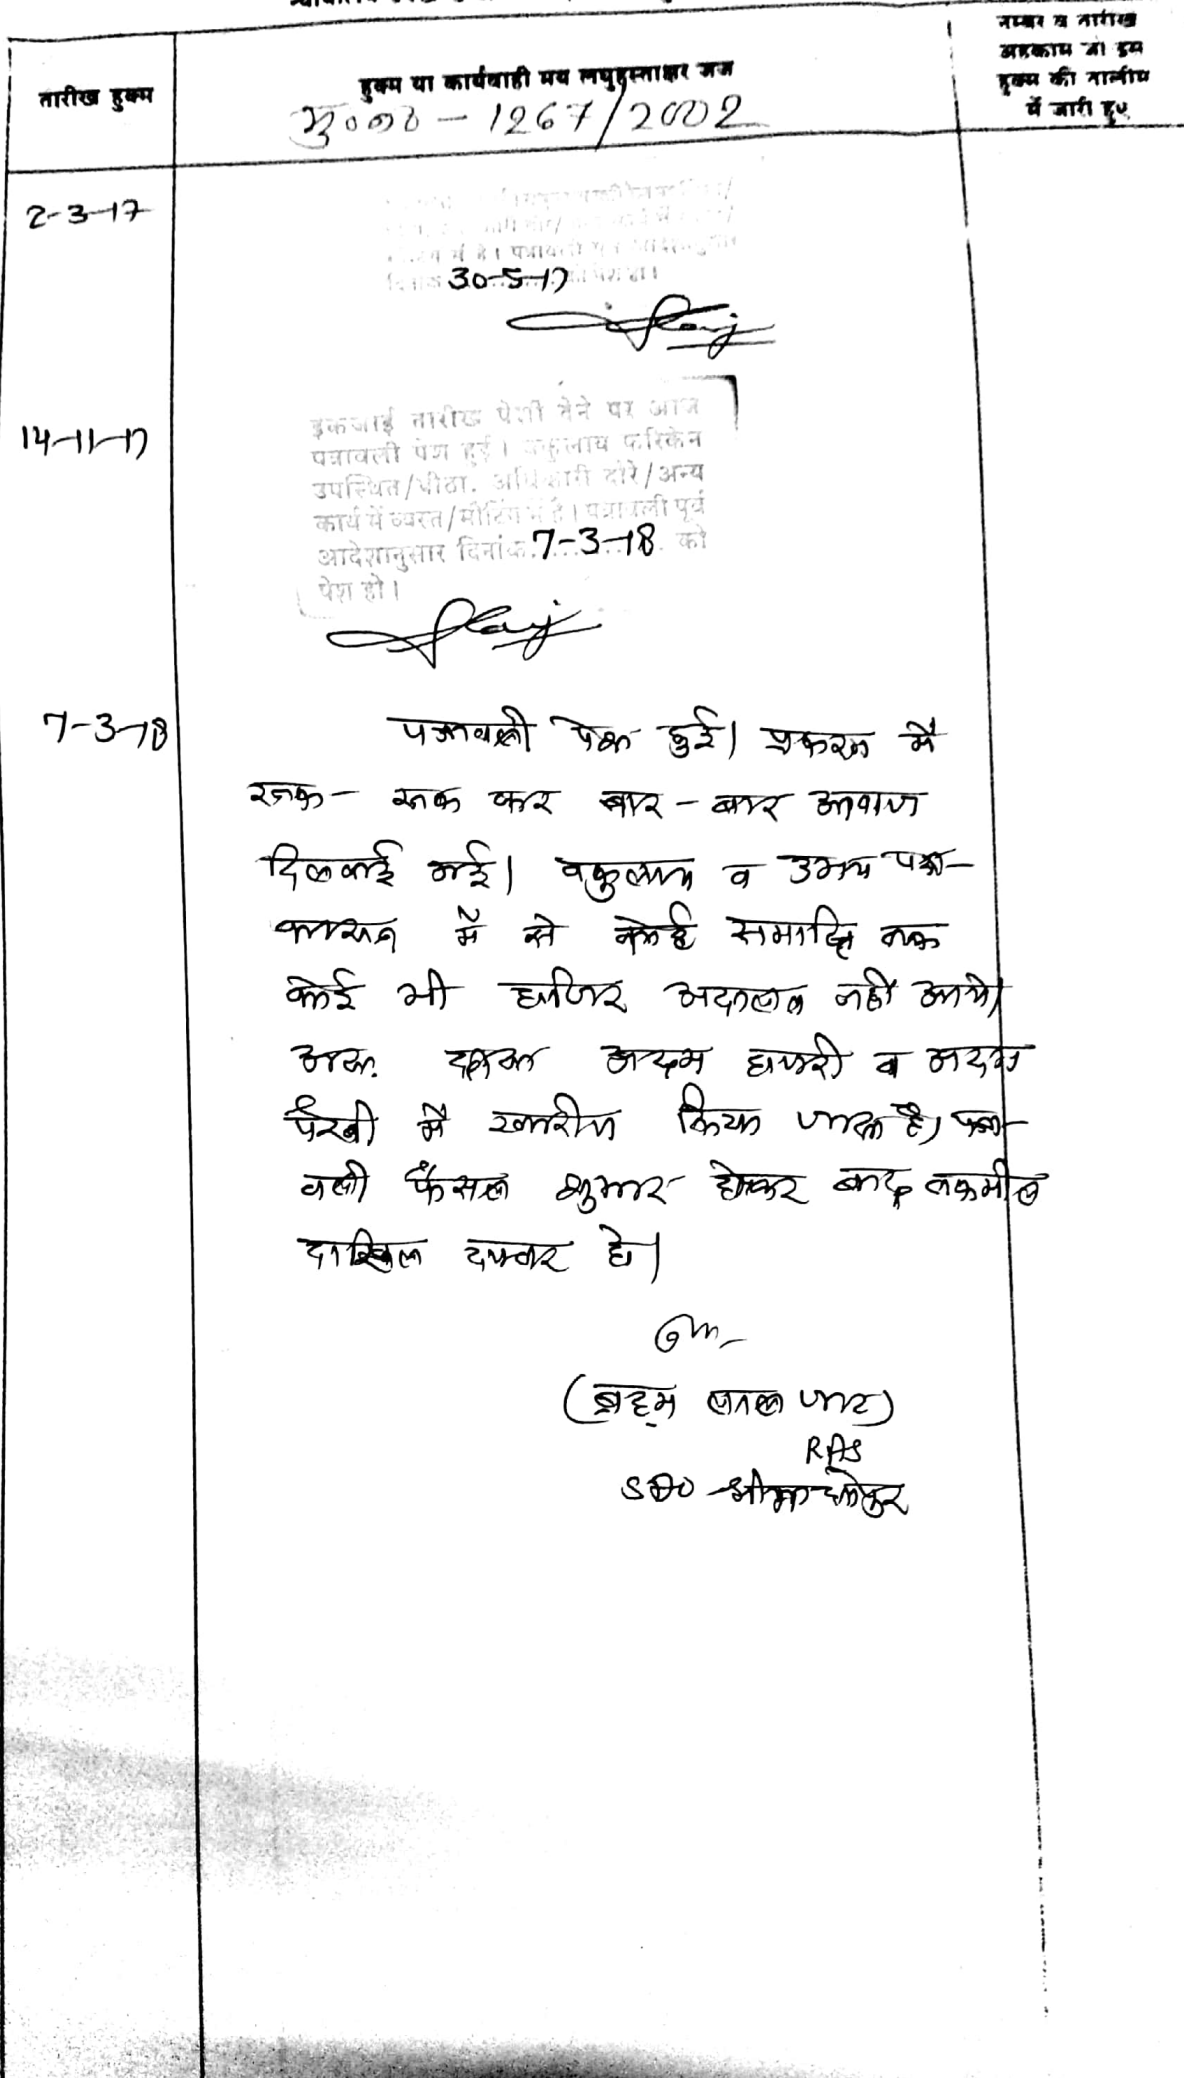 तारीख हुक्म
हुक्म या कार्यवाही मय लघुहस्ताक्षर जज
नम्बर व तारीख
अहकाम जो इस
हुक्म की तालीम
में जारी हुए
मु०न० - 1267/2002
2-3-17
में है। पत्रावली
30-5-17
14-11-17
इकजाई तारीख पेशी देने पर आज
पत्रावली पेश हुई। वकुलाय फरिकेन
उपस्थित/पीठा. अधिकारी दौरे/अन्य
कार्य में व्यस्त/मीटिंग में है। पत्रावली पूर्व
आदेशानुसार दिनांक 7-3-18 को
पेश हो।
7-3-18
पत्रावली पेश हुई। प्रकरण में
रूक - रूक कर बार - बार आवाज
दिलवाई गई। वकुलाय व उभय पक्ष-
कारान में से कोई समाप्ति तक
कोई भी हाजिर अदालत नहीं आये।
अतः दावा अदम हाजरी व अदम
पैरवी में खारीज किया जाता है। पत्रा-
वली फैसल शुमार होकर बाद तकमील
दाखिल दफ्तर हो।
(ब्रह्म लाल जाट)
RAS
SDO श्रीमाधोपुर